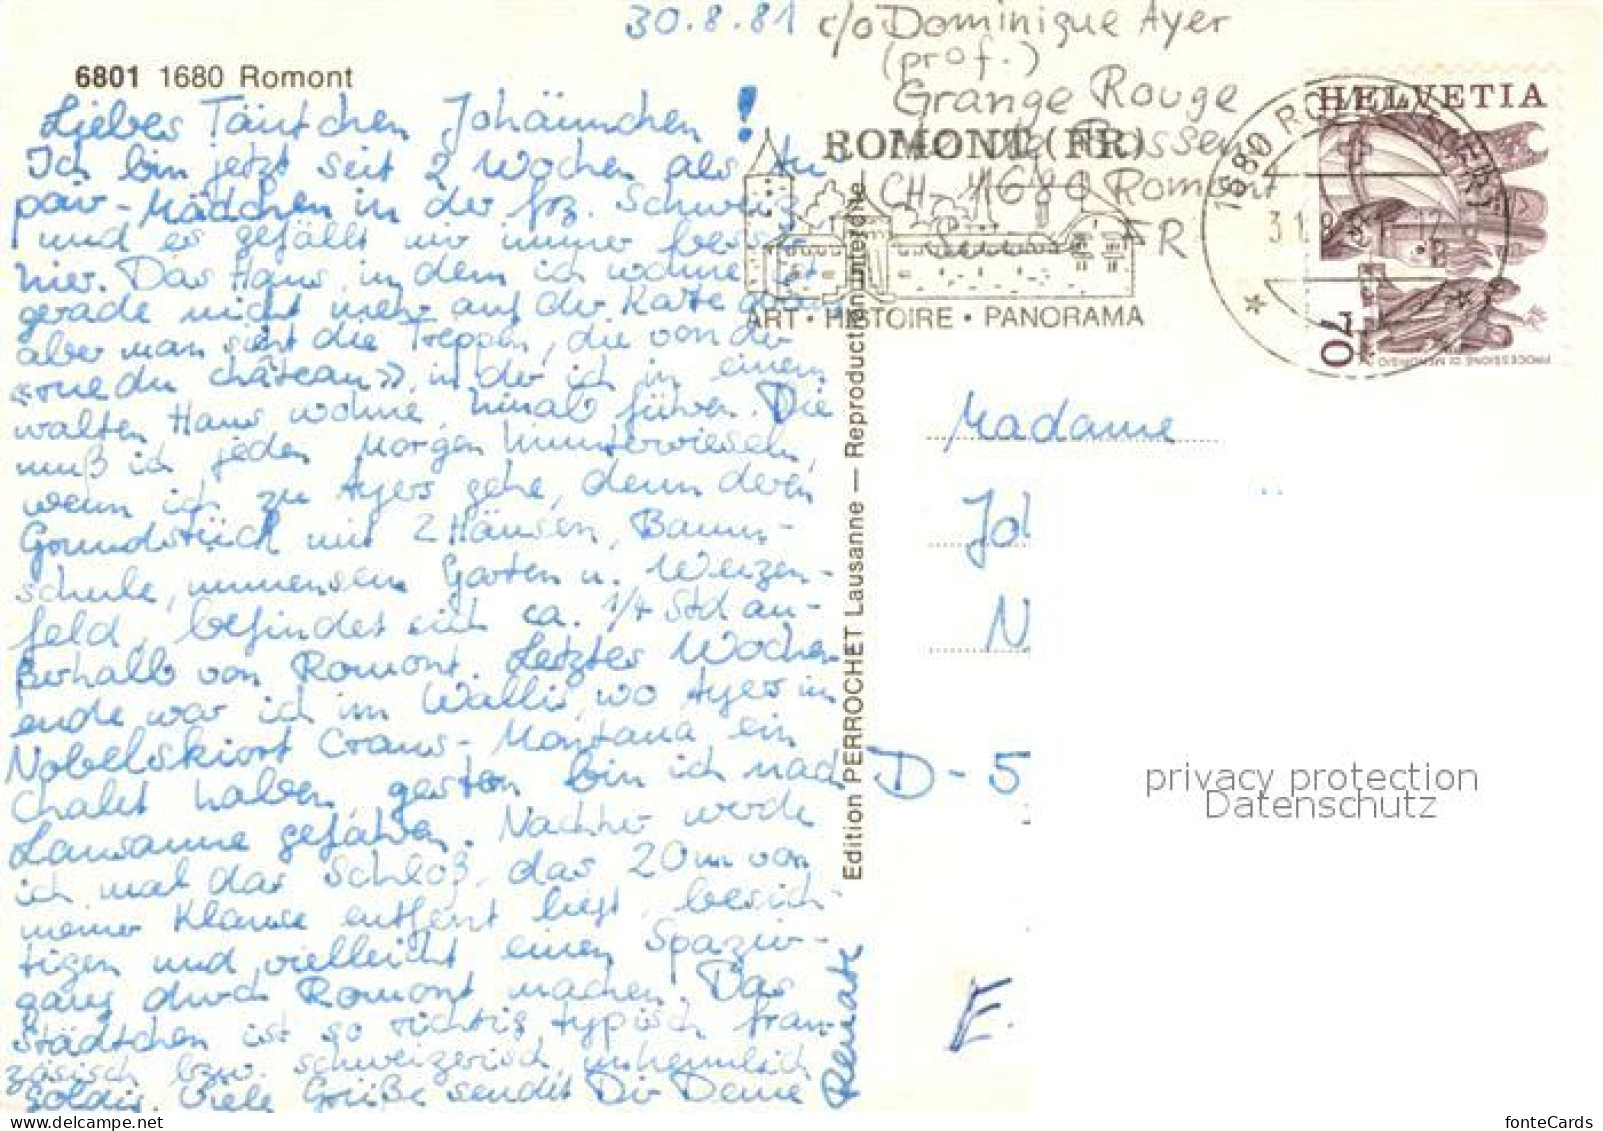 30.8.81 c/o Dominique Ayer
(prof.)
Grange Rouge
CH-1680 Romont
FR
6801 1680 Romont
ROMONT (FR)
ART • HISTOIRE • PANORAMA
1680 ROMONT
HELVETIA
70
PROCESSIONE DI MENDRISIO
Liebes Täntchen Johännchen!
Ich bin jetzt seit 2 Wochen als Au
pair-Mädchen in der frz. Schweiz
und es gefällt mir immer besser
hier. Das Haus, in dem ich wohne ist
gerade nicht mehr auf der Karte drauf
aber man sieht die Treppen, die von der
«rue du château», in der ich in einem
alten Haus wohne, hinab führen. Die
muß ich jeden Morgen hinunterwieseln,
wenn ich zu Ayers gehe, denn deren
Grundstück mit 2 Häusern, Baum-
schule, immensem Garten u. Weizen-
feld, befindet sich ca. 1/4 Std au-
ßerhalb von Romont. Letztes Wochen-
ende war ich im Wallis, wo Ayers im
Nobelskiort Crans-Montana ein
Chalet haben, gestern bin ich nach
Lausanne gefahren. Nachher werde
ich mal das Schloß, das 20m von
meiner Klause entfernt liegt, besich-
tigen und vielleicht einen Spazier-
gang durch Romont machen. Das
Städtchen ist so richtig typisch fran-
zösisch bzw. schweizerisch, unheimlich
goldig. Viele Grüße sendet Dir Deine
Renate
Edition PERROCHET Lausanne — Reproduction interdite
Madame
D-5
E.
privacy protection
Datenschutz
fonteCards